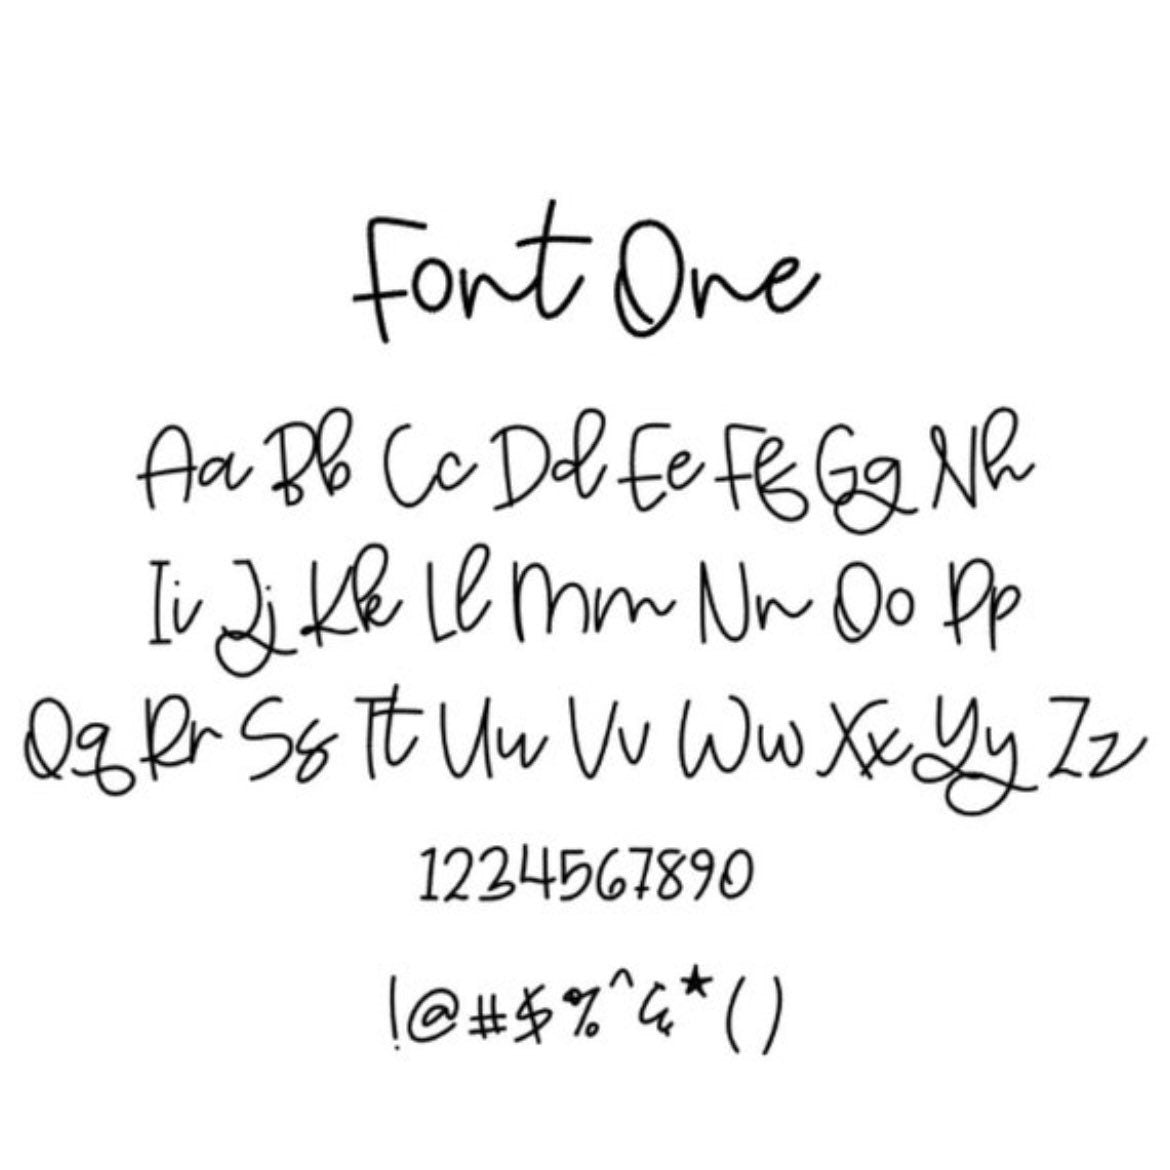 Font One
Aa Bb Cc Dd Ee Ff Gg Hh
Ii Jj Kk Ll Mm Nn Oo Pp
Qq Rr Ss Tt Uu Vv Ww Xx Yy Zz
1234567890
!@#$%^&*()